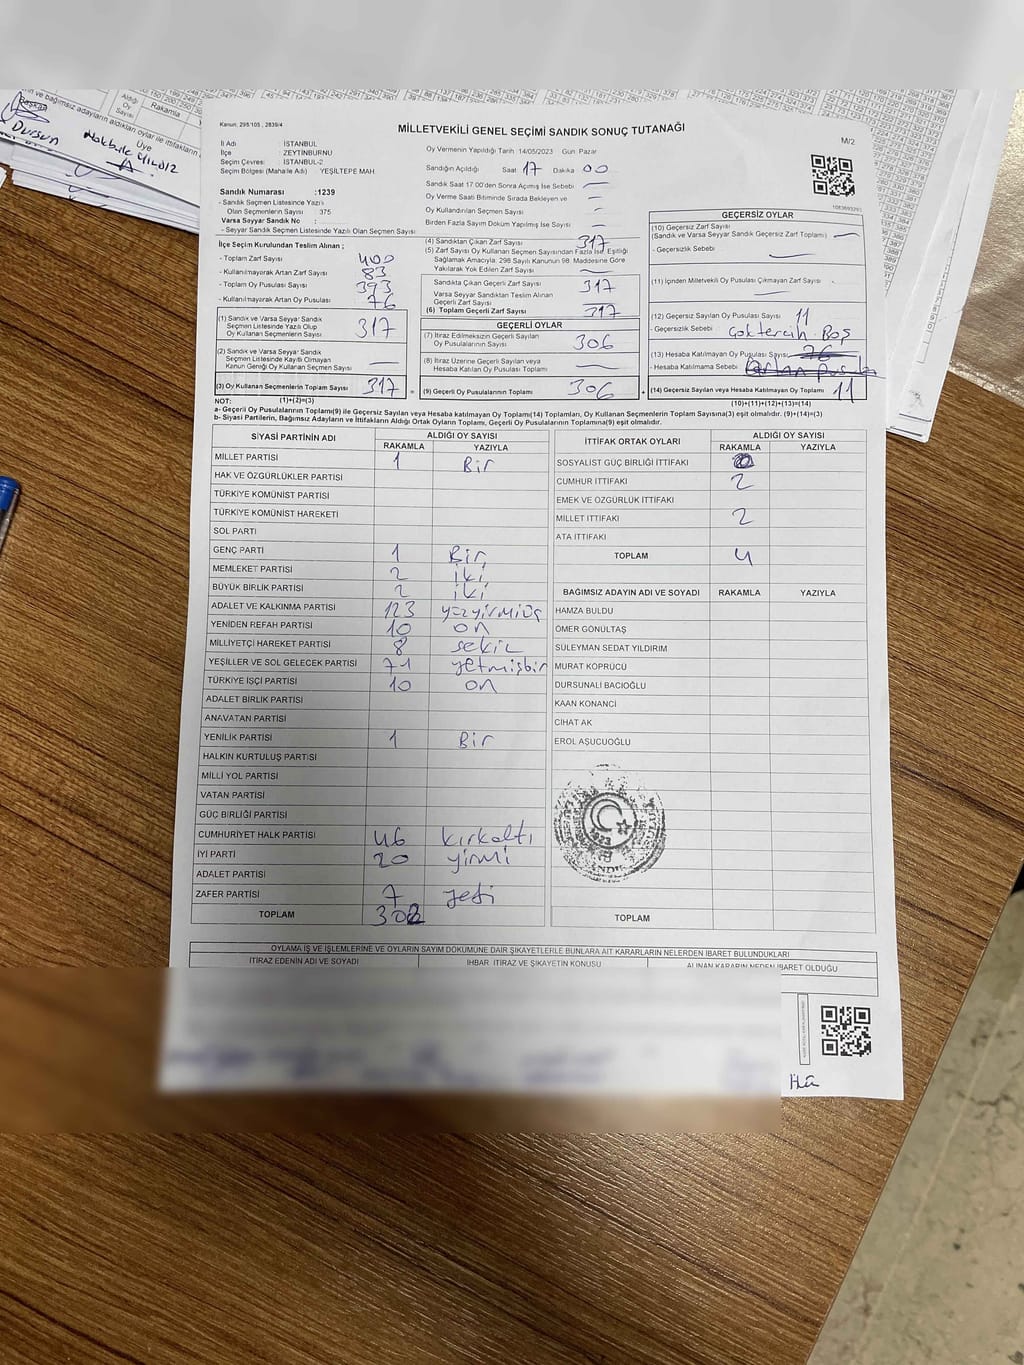 Kanun; 298/105 , 2839/4
MİLLETVEKİLİ GENEL SEÇİMİ SANDIK SONUÇ TUTANAĞI
M/2
İl Adı : İSTANBUL
İlçe : ZEYTİNBURNU
Seçim Çevresi : İSTANBUL-2
Seçim Bölgesi (Mahalle Adı) YEŞİLTEPE MAH.
Sandık Numarası :1239
- Sandık Seçmen Listesinde Yazılı
Olan Seçmenlerin Sayısı 375
Varsa Seyyar Sandık No :
- Seyyar Sandık Seçmen Listesinde Yazılı Olan Seçmen Sayısı
İlçe Seçim Kurulundan Teslim Alınan ;
- Toplam Zarf Sayısı 400
- Kullanılmayarak Artan Zarf Sayısı 83
- Toplam Oy Pusulası Sayısı 393
- Kullanılmayarak Artan Oy Pusulası 76
(1) Sandık ve Varsa Seyyar Sandık
Seçmen Listesinde Yazılı Olup
Oy Kullanan Seçmenlerin Sayısı 317
(2) Sandık ve Varsa Seyyar Sandık
Seçmen Listesinde Kayıtlı Olmayan
Kanun Gereği Oy Kullanan Seçmen Sayısı
(3) Oy Kullanan Seçmenlerin Toplam Sayısı 317
(1)+(2)=(3)
Oy Vermenin Yapıldığı Tarih :14/05/2023 Gün: Pazar
Sandığın Açıldığı Saat 17 Dakika 00
Sandık Saat 17.00'den Sonra Açılmış İse Sebebi
Oy Verme Saati Bitiminde Sırada Bekleyen ve
Oy Kullandırılan Seçmen Sayısı
Birden Fazla Sayım Döküm Yapılmış İse Sayısı
(4) Sandıktan Çıkan Zarf Sayısı 317
(5) Zarf Sayısı Oy Kullanan Seçmen Sayısından Fazla İse, Eşitliği
Sağlamak Amacıyla, 298 Sayılı Kanunun 98. Maddesine Göre
Yakılarak Yok Edilen Zarf Sayısı
Sandıkta Çıkan Geçerli Zarf Sayısı 317
Varsa Seyyar Sandıktan Teslim Alınan
Geçerli Zarf Sayısı
(6) Toplam Geçerli Zarf Sayısı 317
GEÇERLİ OYLAR
(7) İtiraz Edilmeksizin Geçerli Sayılan
Oy Pusulalarının Sayısı 306
(8) İtiraz Üzerine Geçerli Sayılan veya
Hesaba Katılan Oy Pusulalarının Sayısı
= (9) Geçerli Oy Pusulalarının Toplamı 306
GEÇERSİZ OYLAR
(10) Geçersiz Zarf Sayısı
(Sandık ve Varsa Seyyar Sandık Geçersiz Zarf Toplamı)
- Geçersizlik Sebebi
(11) İçinden Milletvekili Oy Pusulası Çıkmayan Zarf Sayısı
(12) Geçersiz Sayılan Oy Pusulası Sayısı 11
- Geçersizlik Sebebi : Çoktercih Boş
(13) Hesaba Katılmayan Oy Pusulası Sayısı 76
- Hesaba Katılmama Sebebi
+ (14) Geçersiz Sayılan veya Hesaba Katılmayan Oy Toplamı 11
(10)+(11)+(12)+(13)=(14)
NOT:
a- Geçerli Oy Pusulalarının Toplamı(9) ile Geçersiz Sayılan veya Hesaba katılmayan Oy Toplamı(14) Toplamları, Oy Kullanan Seçmenlerin Toplam Sayısına(3) eşit olmalıdır. (9)+(14)=(3)
b- Siyasi Partilerin, Bağımsız Adayların ve İttifakların Aldığı Ortak Oyların Toplamı, Geçerli Oy Pusulalarının Toplamına(9) eşit olmalıdır.
SİYASİ PARTİNİN ADI ALDIĞI OY SAYISI
RAKAMLA YAZIYLA
MİLLET PARTİSİ 1 Bir
HAK VE ÖZGÜRLÜKLER PARTİSİ
TÜRKİYE KOMÜNİST PARTİSİ
TÜRKİYE KOMÜNİST HAREKETİ
SOL PARTİ
GENÇ PARTİ 1 Bir
MEMLEKET PARTİSİ 2 iki
BÜYÜK BİRLİK PARTİSİ 2 iki
ADALET VE KALKINMA PARTİSİ 123 yüzyirmiüç
YENİDEN REFAH PARTİSİ 10 on
MİLLİYETÇİ HAREKET PARTİSİ 8 sekiz
YEŞİLLER VE SOL GELECEK PARTİSİ 71 yetmişbir
TÜRKİYE İŞÇİ PARTİSİ 10 on
ADALET BİRLİK PARTİSİ
ANAVATAN PARTİSİ
YENİLİK PARTİSİ 1 Bir
HALKIN KURTULUŞ PARTİSİ
MİLLİ YOL PARTİSİ
VATAN PARTİSİ
GÜÇ BİRLİĞİ PARTİSİ
CUMHURİYET HALK PARTİSİ 46 kırkaltı
İYİ PARTİ 20 yirmi
ADALET PARTİSİ
ZAFER PARTİSİ 7 yedi
TOPLAM 302
İTTİFAK ORTAK OYLARI ALDIĞI OY SAYISI
RAKAMLA YAZIYLA
SOSYALİST GÜÇ BİRLİĞİ İTTİFAKI
CUMHUR İTTİFAKI 2
EMEK VE ÖZGÜRLÜK İTTİFAKI
MİLLET İTTİFAKI 2
ATA İTTİFAKI
TOPLAM 4
BAĞIMSIZ ADAYIN ADI VE SOYADI RAKAMLA YAZIYLA
HAMZA BULDU
ÖMER GÖNÜLTAŞ
SÜLEYMAN SEDAT YILDIRIM
MURAT KÖPRÜCÜ
DURSUNALİ BACIOĞLU
KAAN KONANCİ
CİHAT AK
EROL AŞUCUOĞLU
TOPLAM
OYLAMA İŞ VE İŞLEMLERİNE VE OYLARIN SAYIM DÖKÜMÜNE DAİR ŞİKAYETLERLE BUNLARA AİT KARARLARIN NELERDEN İBARET BULUNDUKLARI
İTİRAZ EDENİN ADI VE SOYADI İHBAR, İTİRAZ VE ŞİKAYETİN KONUSU ALINAN KARARIN NEDEN İBARET OLDUĞU